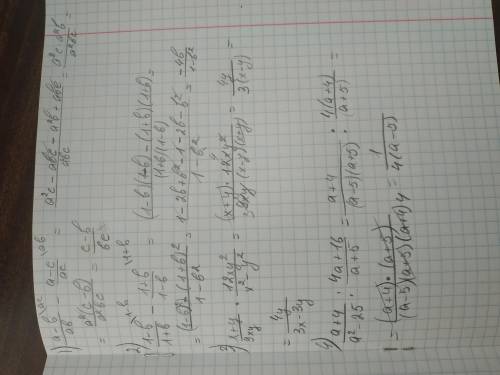 1) (a-b)/ab - (a-c)/ac = (a²c - abc - a²b + abc)/abc = (a²c - a²b)/a²bc =
= a²(c-b)/ = (c-b)/bc
2) (1-b)/(1+b) - (1+b)/(1-b) = ((1-b)(1-b) - (1+b)(1+b))/((1+b)(1-b)) =
= ((1-b)² - (1+b)²)/(1-b²) = (1-2b+b²-1-2b-b²)/(1-b²) = -4b/(1-b²)
3) (x+y)/3xy · 12xy²/(x²-y²) = ((x+y)·12xy²)/(3xy(x-y)(x+y)) = 4y/(3(x-y)) =
= 4y/(3x-3y)
4) (a+4)/(a²-25) : (4a+16)/(a+5) = (a+4)/((a-5)(a+5)) : 4(a+4)/(a+5) =
= ((a+4)·(a+5))/((a-5)(a+5)(a+4)4) = 1/(4(a-5))